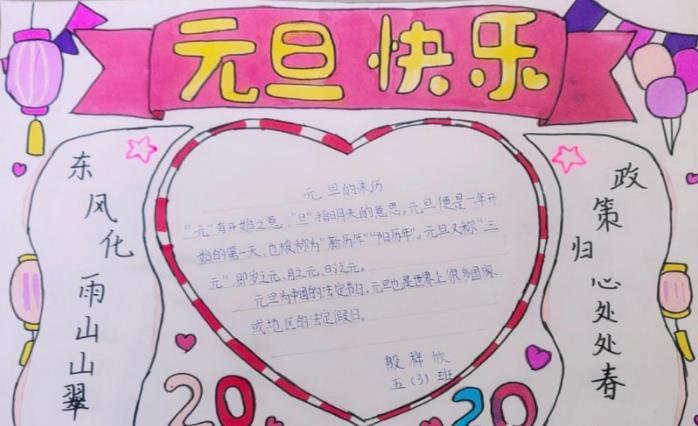 元旦快乐
东风化雨山山翠
元旦的来历
"元"有开始之意，"旦"指明天的意思。元旦便是一年开
始的第一天，也被称为"新历年""阳历年"。元旦又称"三
元"，即岁之元，月之元，时之元。
元旦为中国的法定节日，元旦也是世界上很多国家
或地区的法定假日。
殷梓欣
五（3）班
政策归心处处春
20
20